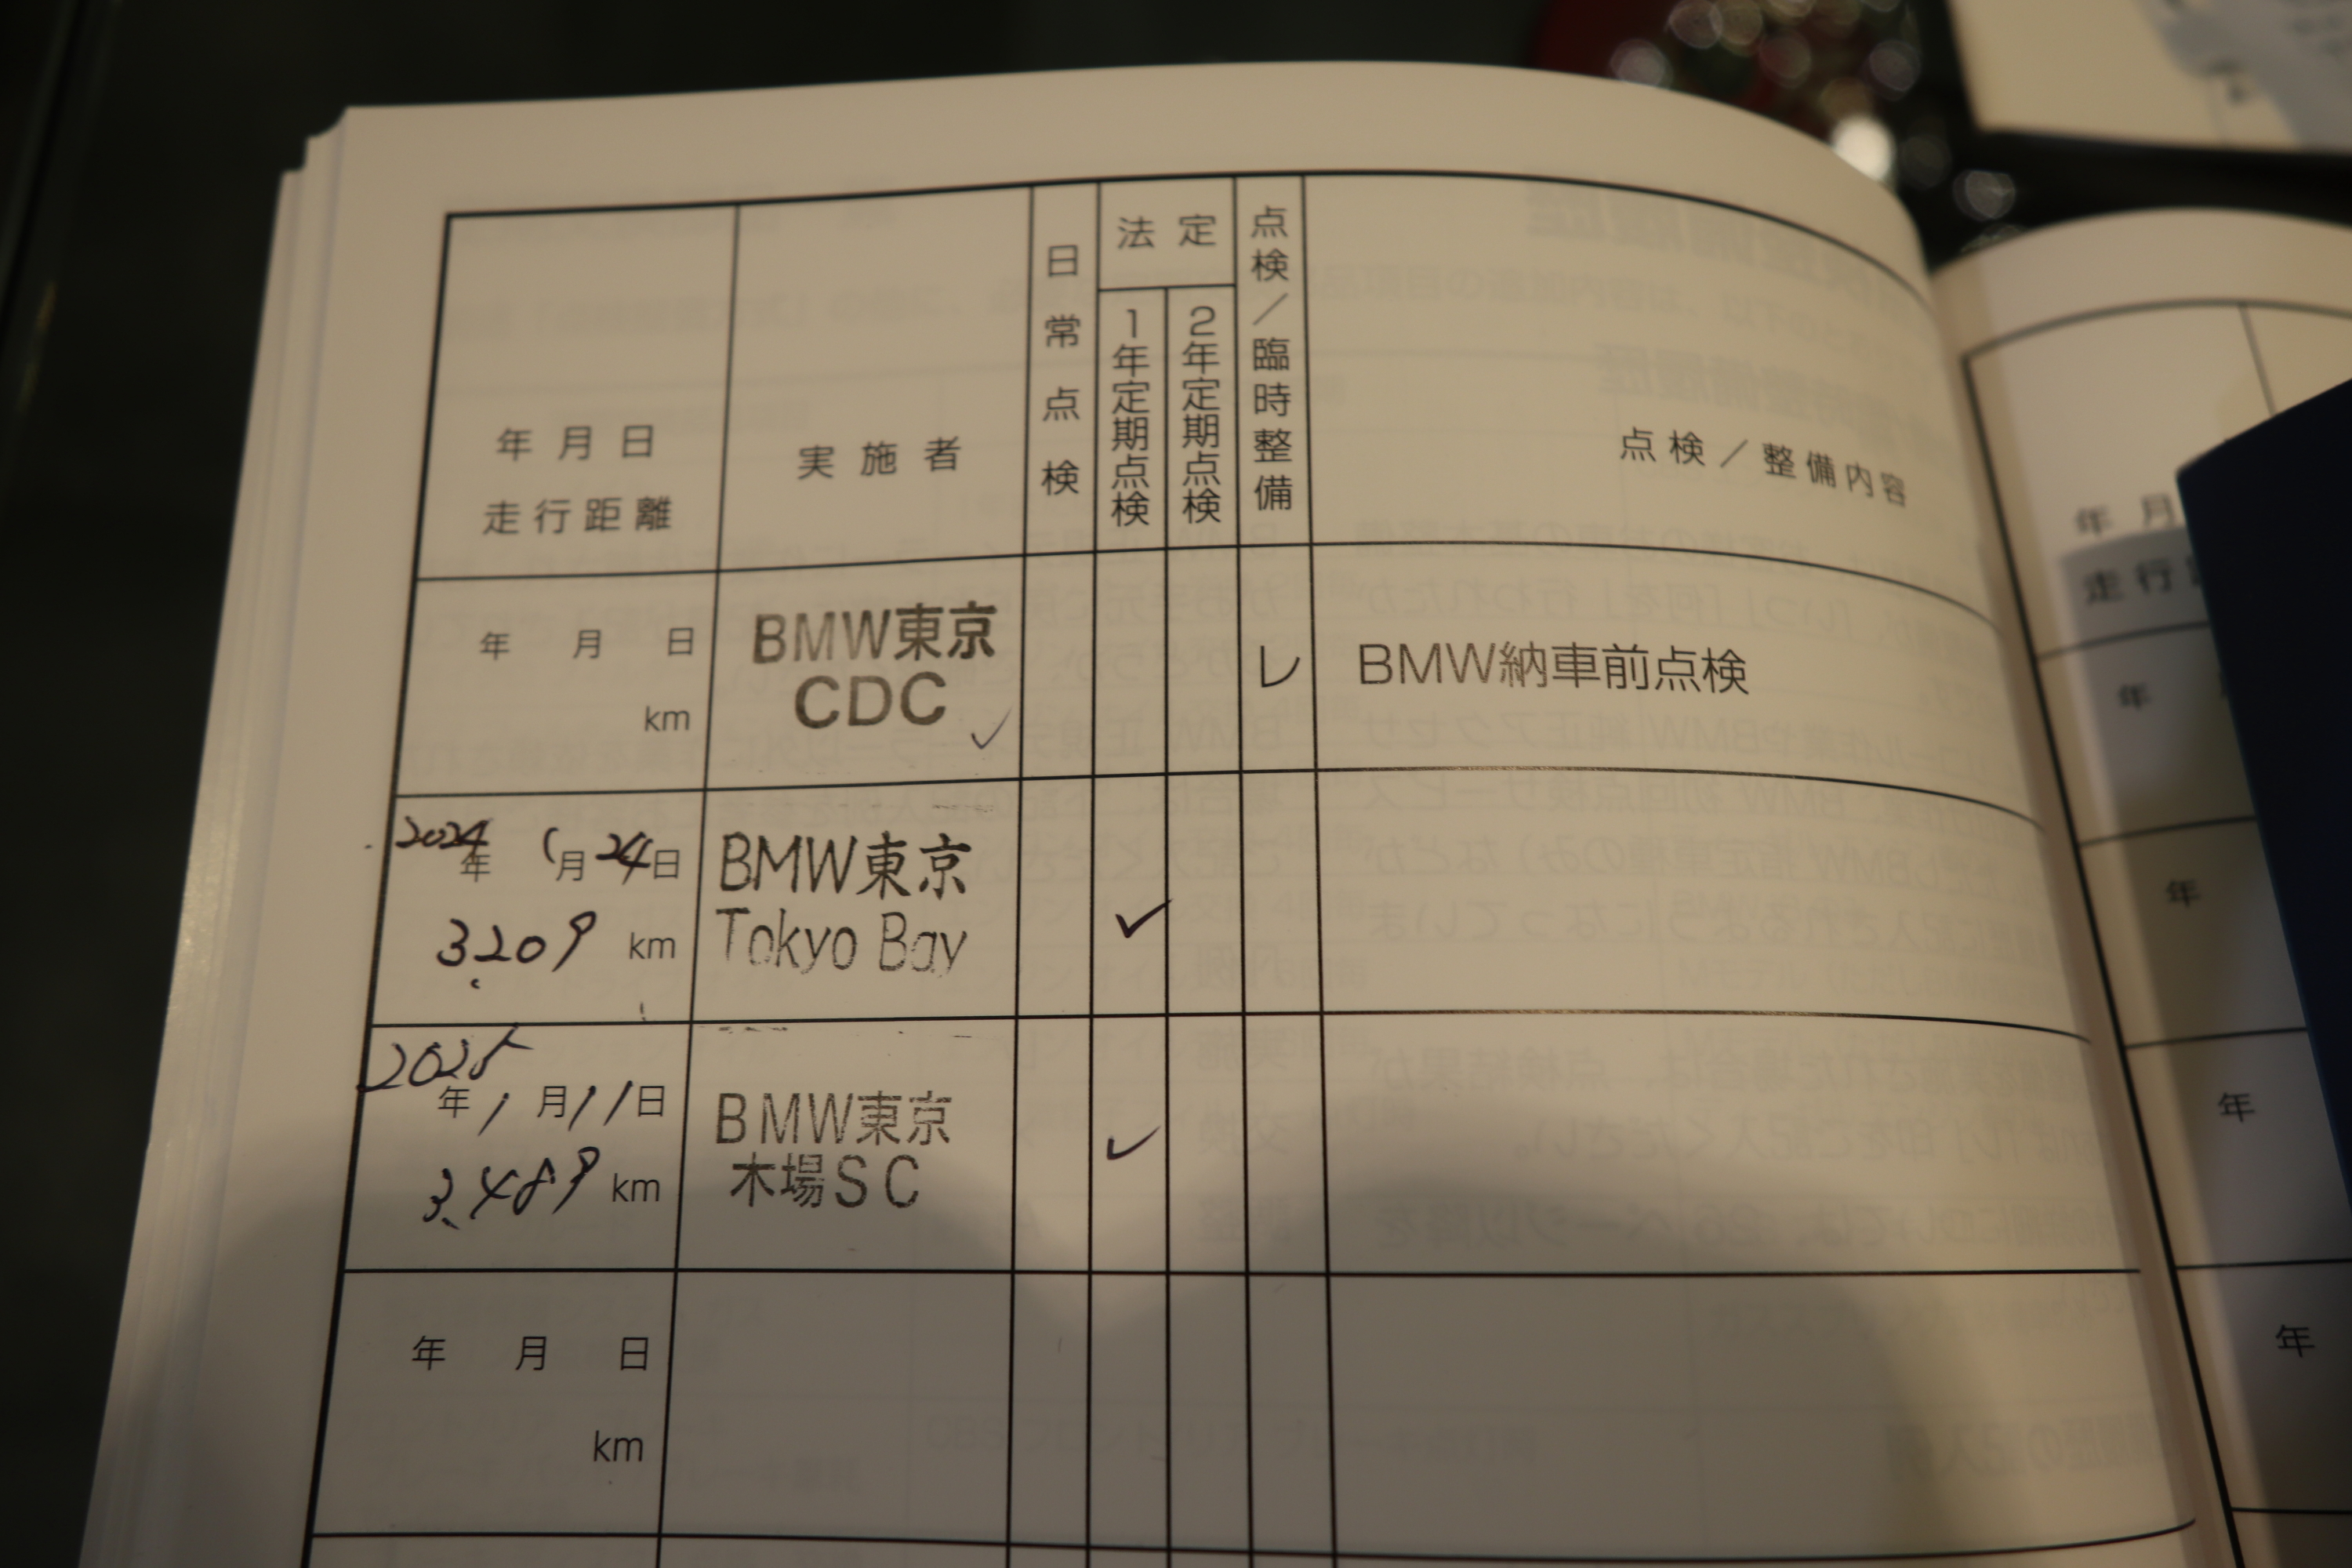 年月日
走行距離
実施者
日常点検
法定
1年定期点検
2年定期点検
点検/臨時整備
点検/整備内容
年 月 日
km
BMW東京
CDC
レ
BMW納車前点検
2024年 1月24日
3.209 km
BMW東京
Tokyo Bay
2025年1月11日
3.489 km
BMW東京
木場SC
年 月 日
km
年 月
走行
年
年
年
年